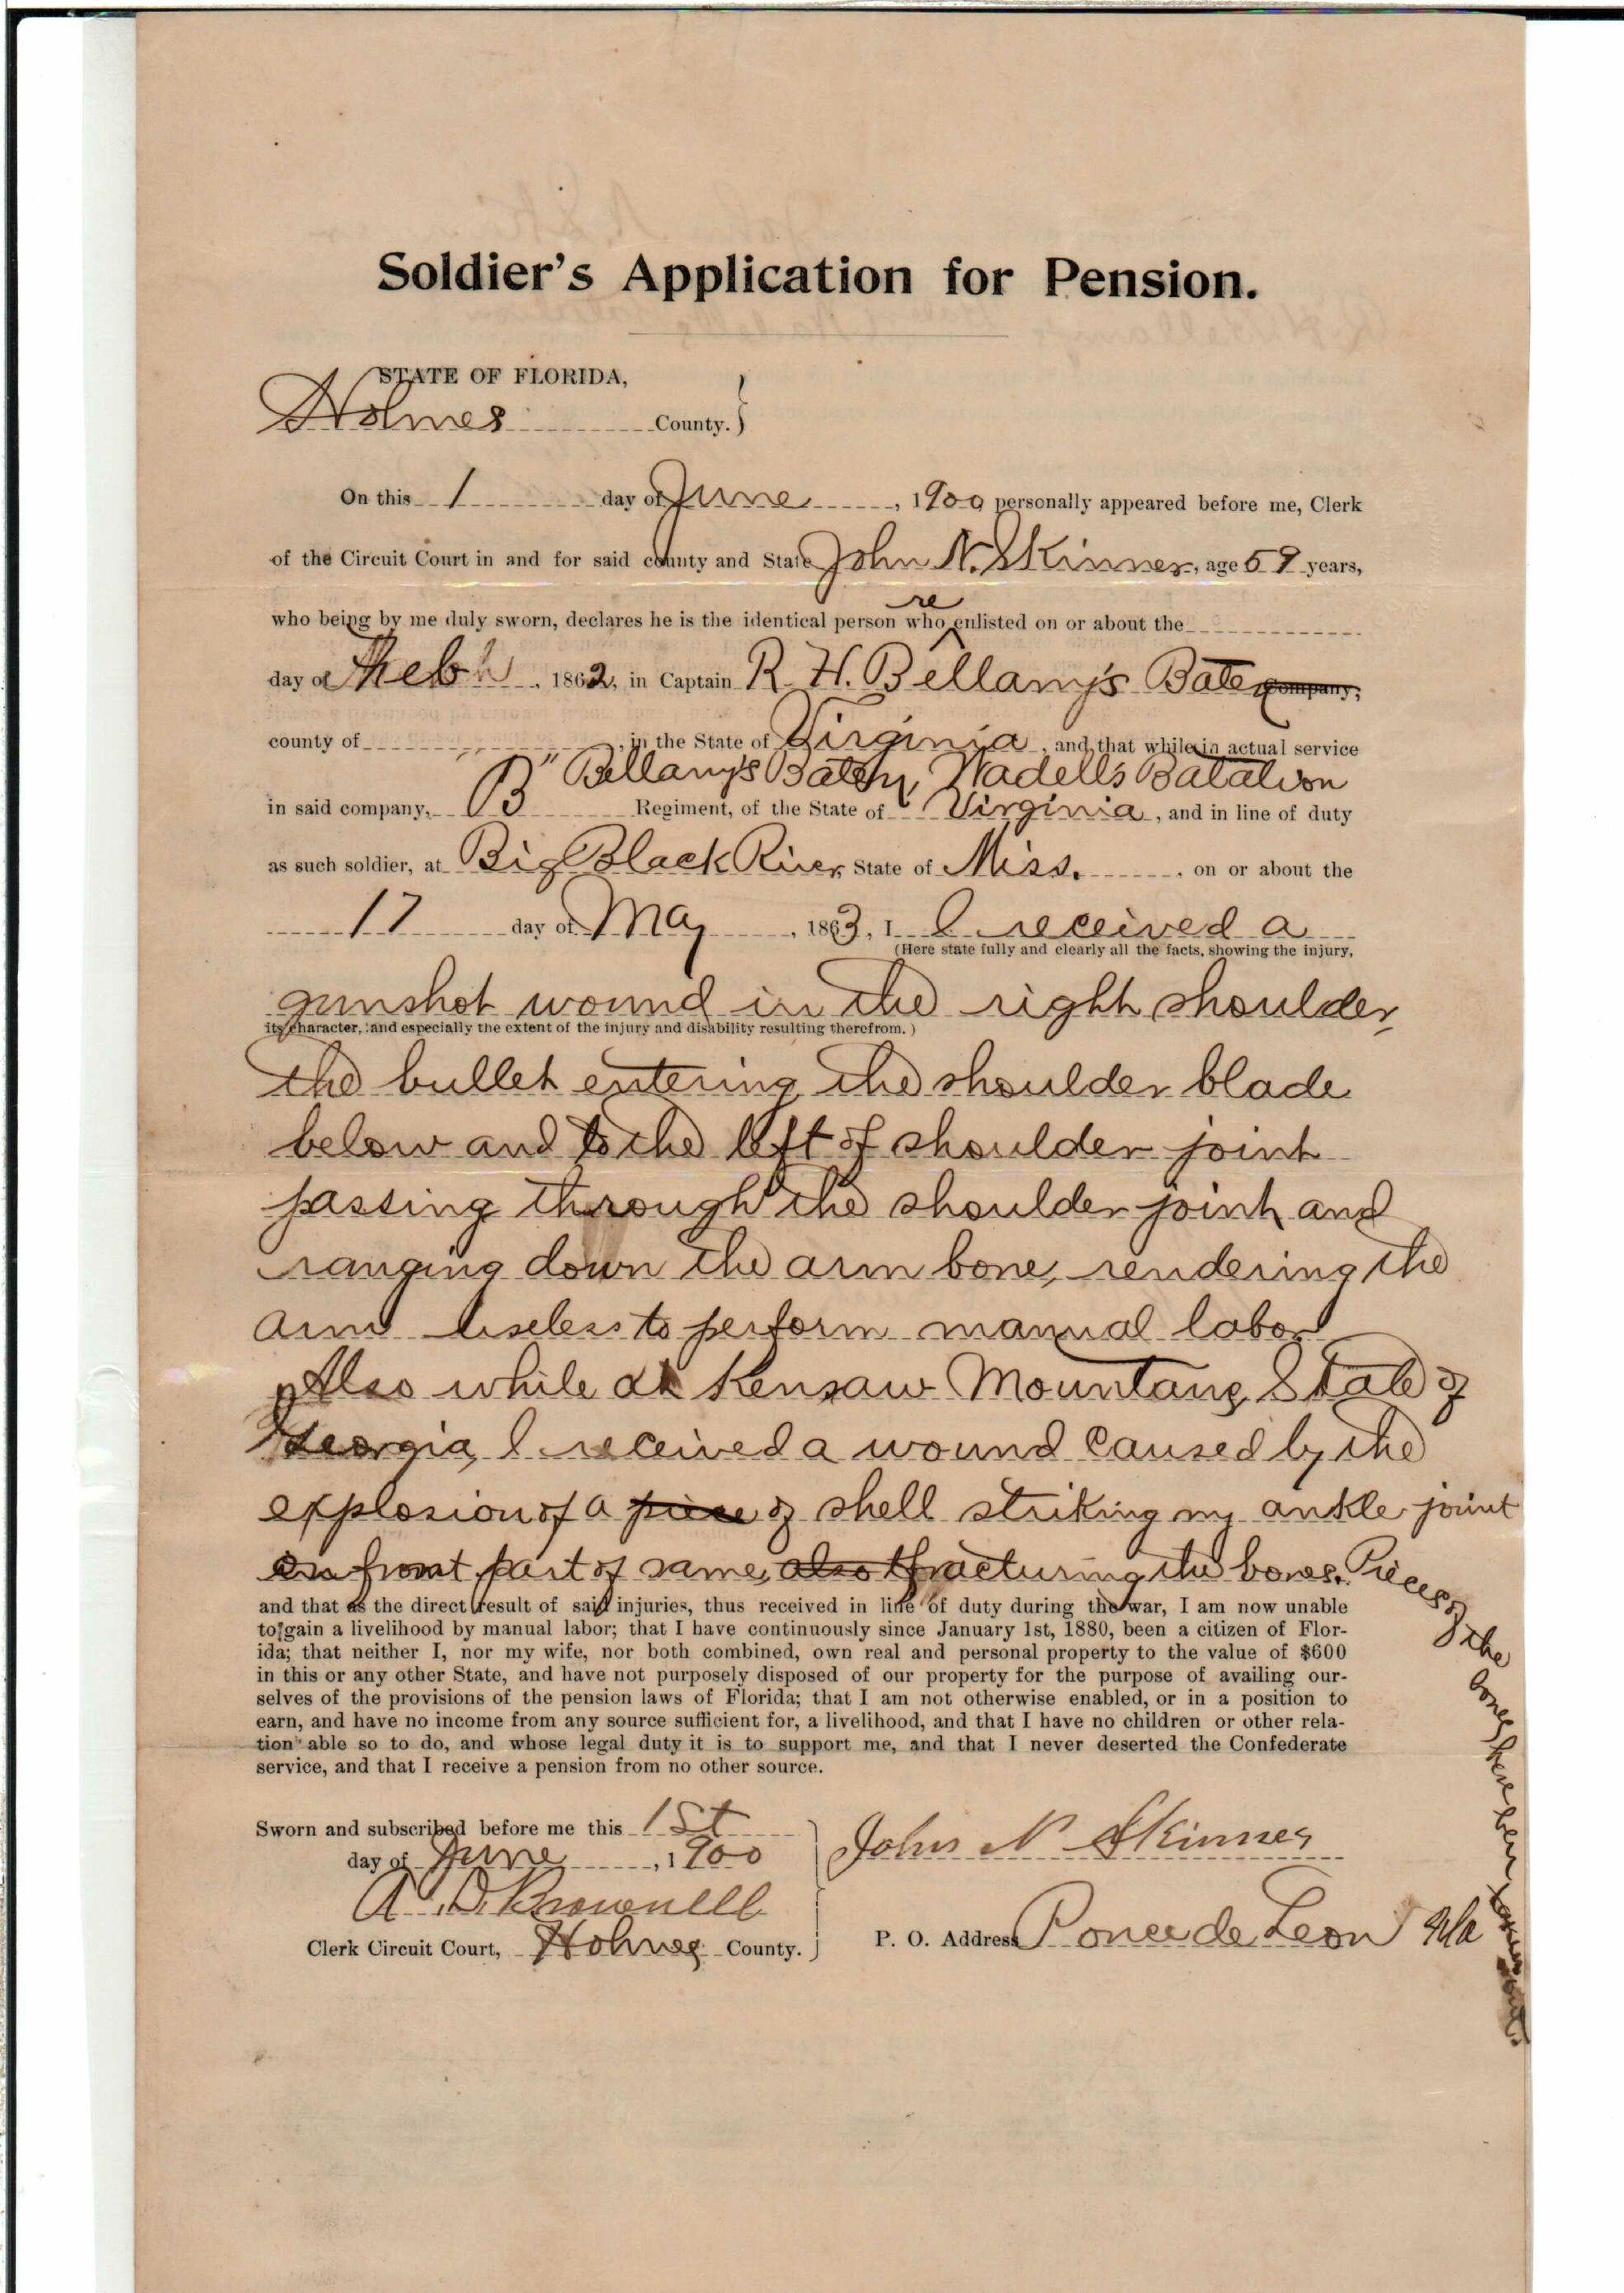 Soldier's Application for Pension.
STATE OF FLORIDA,
Holmes County. }
On this 1 day of June, 1900 personally appeared before me, Clerk
of the Circuit Court in and for said county and State John N. Skinner, age 59 years,
re
who being by me duly sworn, declares he is the identical person who ^ enlisted on or about the
day of Feb, 1862, in Captain R. H. Bellamy's Batery company,
county of , in the State of Virginia, and that while in actual service
"B" Bellamy's Batery, Wadells Batalion
in said company, Regiment, of the State of Virginia, and in line of duty
as such soldier, at Big Black River, State of Miss., on or about the
17 day of May, 1863, I I received a
(Here state fully and clearly all the facts, showing the injury,
gunshot wound in the right shoulder,
its character, and especially the extent of the injury and disability resulting therefrom.)
the bullet entering the shoulder blade
below and to the left of shoulder joint
passing through the shoulder joint and
ranging down the arm bone, rendering the
arm useless to perform manual labor
Also while at Kensaw Mountang State of
Georgia, I received a wound caused by the
explosion of a piece of shell striking my ankle joint
on front part of same, also fracturing the bones. Pieces of the bones have been
and that as the direct result of said injuries, thus received in line of duty during the war, I am now unable
to gain a livelihood by manual labor; that I have continuously since January 1st, 1880, been a citizen of Flor-
ida; that neither I, nor my wife, nor both combined, own real and personal property to the value of $600
in this or any other State, and have not purposely disposed of our property for the purpose of availing our-
selves of the provisions of the pension laws of Florida; that I am not otherwise enabled, or in a position to
earn, and have no income from any source sufficient for, a livelihood, and that I have no children or other rela-
tion able so to do, and whose legal duty it is to support me, and that I never deserted the Confederate
service, and that I receive a pension from no other source.
Sworn and subscribed before me this 1st
day of June, 1900
John N Skinner
A. D. Brownell
Clerk Circuit Court, Holmes County.
P. O. Address Ponce de Leon Fla